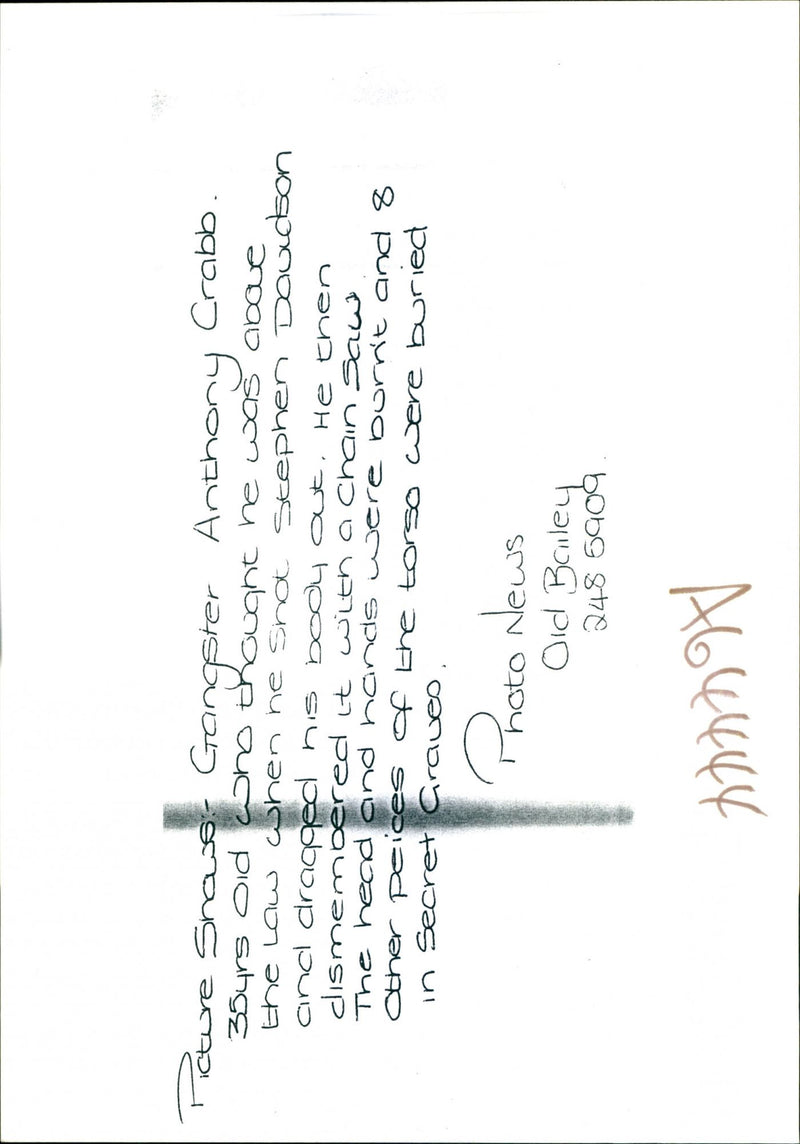 Picture Shows:- Gangster Anthony Crabb.
35yrs Old who thought he was above
the Law when he Shot Stephen Davidson
and dragged his body out. He then
dismembered it with a Chain Saw
The head and hands were burn't and 8
Other peices of the torso were buried
in Secret Graves.
Photo News
Old Bailey
248 5909.